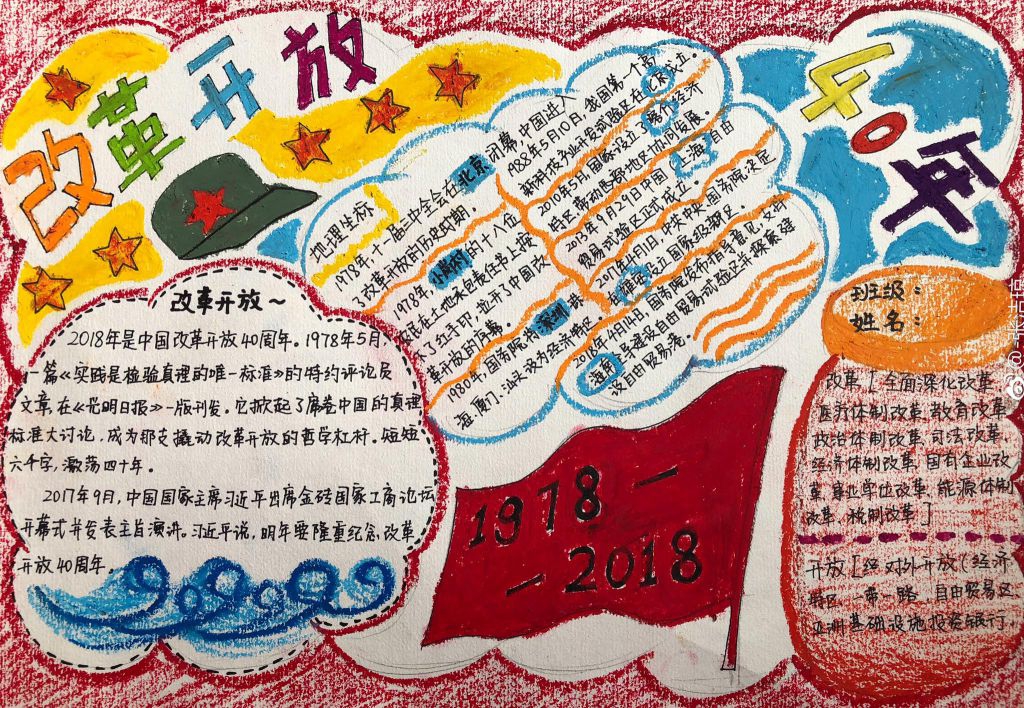 改革开放
40年
改革开放～
2018年是中国改革开放40周年。1978年5月，
一篇《实践是检验真理的唯一标准》的特约评论员
文章，在《光明日报》一版刊发。它掀起了席卷中国的真理
标准大讨论，成为那支撬动改革开放的哲学杠杆。短短
六千字，激荡四十年。
2017年9月，中国国家主席习近平出席金砖国家工商论坛
开幕式并发表主旨演讲。习近平说，明年要隆重纪念改革
开放40周年。
地理坐标
1978年，十一届三中全会在北京闭幕，中国进入
了改革开放的历史时期。
1978年，小岗村的十八位
农民在土地承包责任书上按
下了红手印，拉开了中国改
革开放的序幕。
1980年，国务院将深圳、珠
海、厦门、汕头设为经济特区。
1988年5月10日，我国第一个高
新科技产业开发试验区在北京成立。
2010年5月，国家设立喀什经济
特区，带动西部地区协同发展。
2013年9月29日中国上海自由
贸易试验区正式成立。
2017年4月1日，中共中央、国务院决定
在雄安设立国家级新区。
2018年4月14日，国务院发布指导意见，支持
海南全岛建设自由贸易试验区并探索建
设自由贸易港。
1978—
—2018
班级：
姓名：
改革［全面深化改革
医疗体制改革，教育改革
政治体制改革，司法改革，
经济体制改革，国有企业改
革，事业单位改革，能源体制
改革，税制改革］
开放［经 对外开放（经济
特区，一带一路，自由贸易区
亚洲基础设施投资银行，